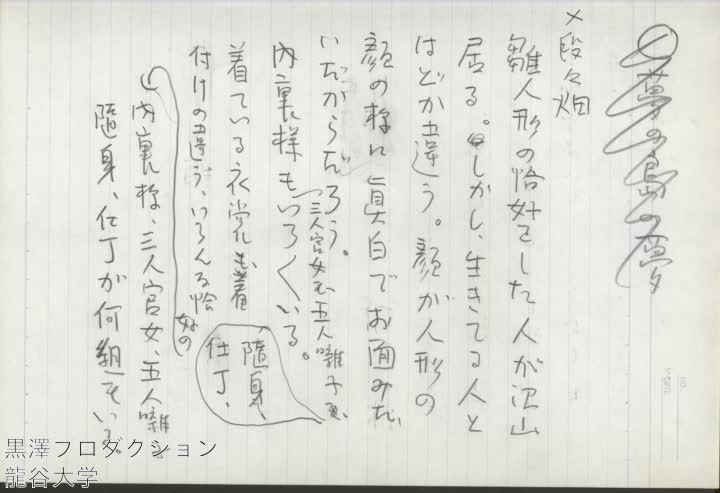 夢の島の夢
×段々畑
雛人形の恰好をした人が沢山
居る。しかし、生きてる人と
はどか違う。顔が人形の
顔の様に真白でお面みた
いだからだろう。
三人官女も五人囃子も、
随身、
仕丁、
内裏様もいろ〱いる。
着ている衣裳も着
付けの違う、いろんな恰好の
内裏様、三人官女、五人囃子
随身、仕丁が何組もいる。
黒澤プロダクション
龍谷大学